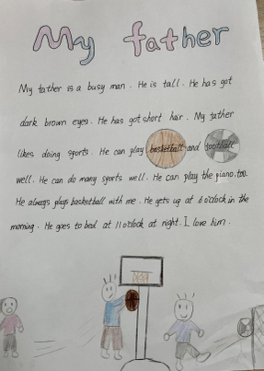 My father
My father is a busy man. He is tall. He has got
dark brown eyes. He has got short hair. My father
likes doing sports. He can play basketball and football
well. He can do many sports well. He can play the piano, too.
He always plays basketball with me. He gets up at 6 o'clock in the
morning. He goes to bed at 11 o'clock at night. I love him.